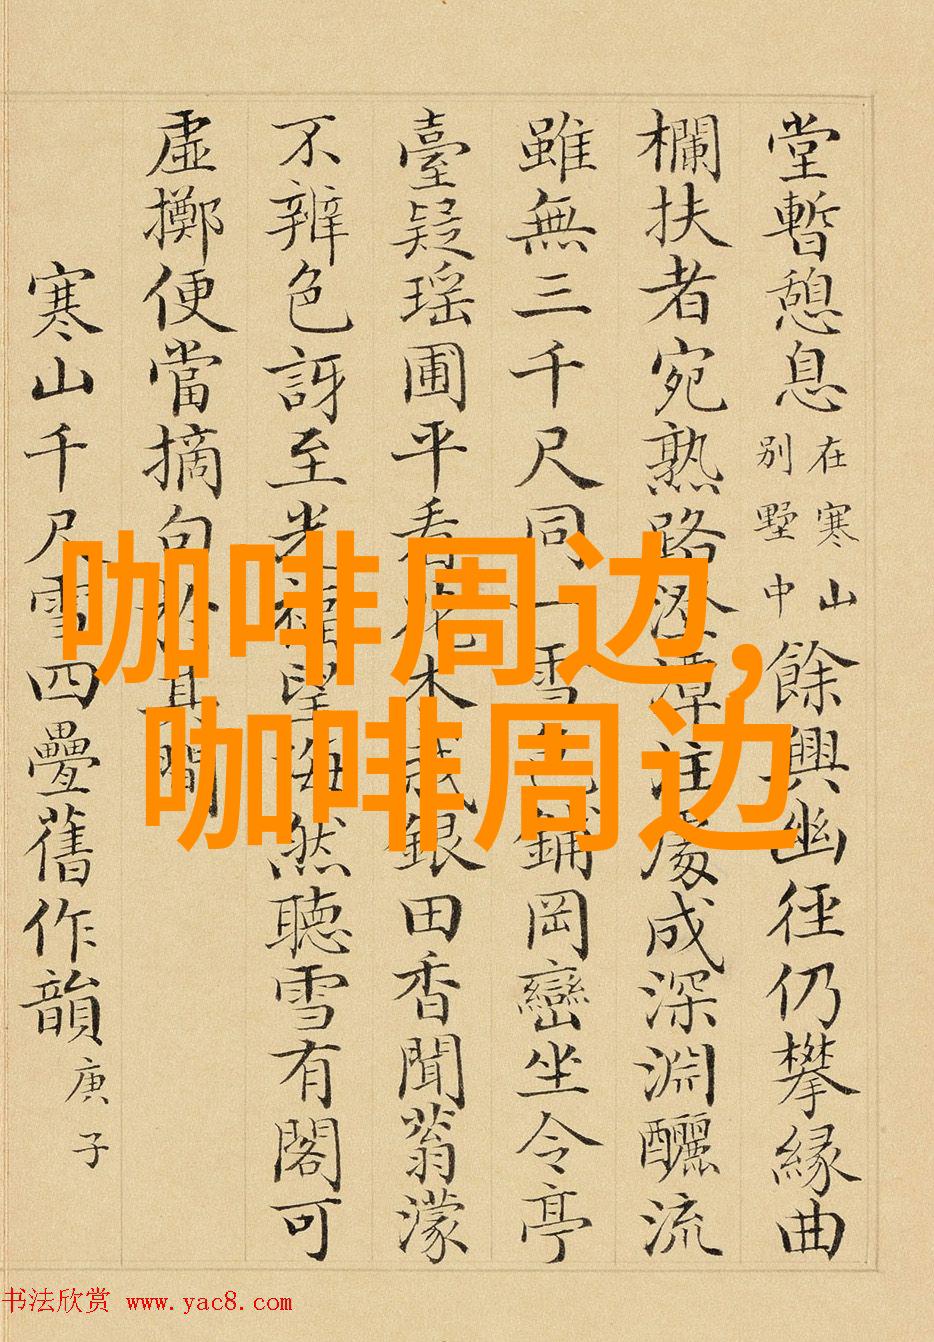 堂暫憩息在寒山別墅中餘興幽徑仍攀緣曲
欄扶者宛熟路澄潭注處成深淵釃流
雖無三千尺同一雪鋪岡巒坐令亭
臺疑瑶圃平看花木成銀田香聞蓊濛
不辨色訝至光福望海然聽雪有閣可
虛擲便當摘句於其間
寒山千尺雪四疊舊作韻庚子
咖啡周边,
咖啡周边
书法欣赏 www.yac8.com